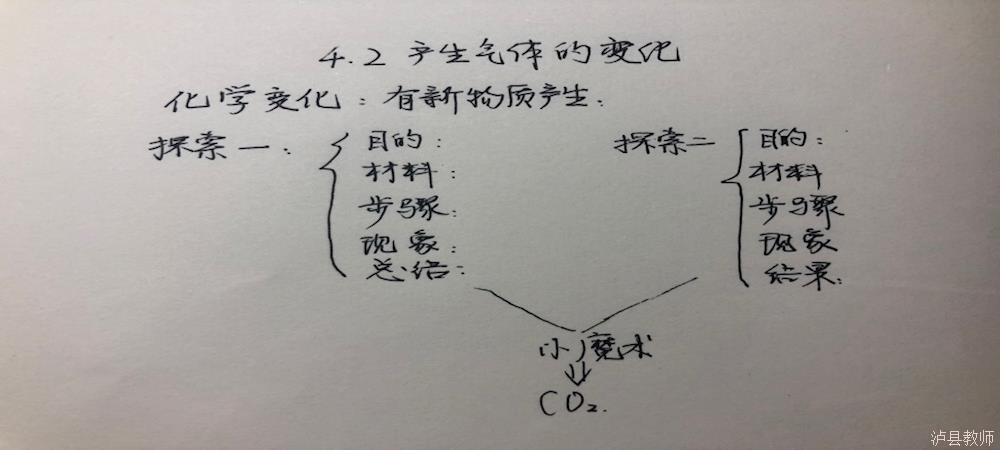 4.2 产生气体的变化
化学变化：有新物质产生.
探索一：
目的：
材料：
步骤：
现象：
总结：
探索二
目的：
材料
步骤
现象
结果：
小魔术
CO₂.
泸县教师